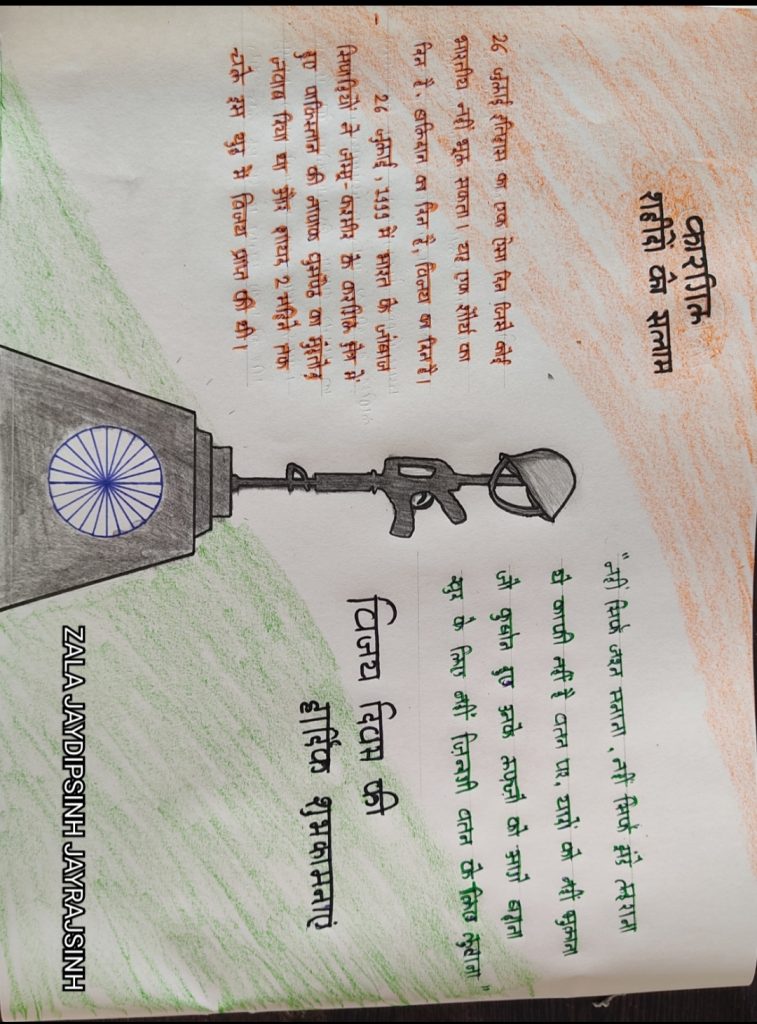 कारगिल
शहीदो को सलाम
26 जुलाई इतिहास का एक ऐसा दिन जिसे कोई
भारतीय नहीं भूल सकता। यह एक शौर्य का
दिन है, बलिदान का दिन है, विजय का दिन है।
26 जुलाई, 1999 में भारत के जांबाज
सिपाहियों ने जम्मू-कश्मीर के कारगिल क्षेत्र में
हुए पाकिस्तान की नापाक घुसपैठ का मुंहतोड़
जवाब दिया था और शायद 2 महिने तक
चले इस युद्ध में विजय प्राप्त की थी।
"नहीं सिर्फ जश्न मनाना, नहीं सिर्फ झंडे लहराना
ये काफी नहीं है वतन पर, यारों को नहीं भुलाना
जो कुर्बान हुए उनके लफ़्जों को आगे बढ़ाना
खुद के लिए नहीं ज़िन्दगी वतन के लिए लुटाना"
विजय दिवस की
हार्दिक शुभकामनाएं
ZALA JAYDIPSINH JAYRAJSINH